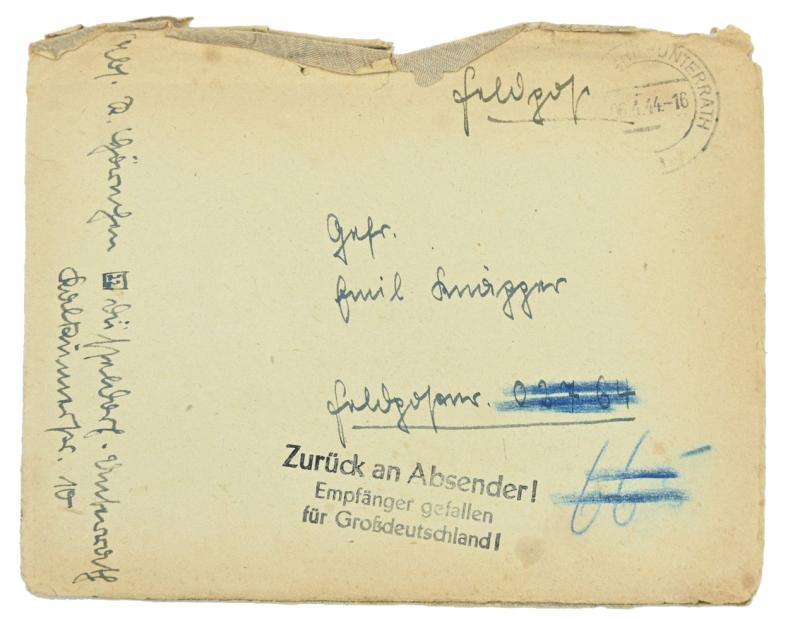 Feldpost
UNTERRATH
4.44-16
Gefr.
Emil Knäpper
Feldpostnr. 03764
Zurück an Absender!
Empfänger gefallen
für Großdeutschland!
Düsseldorf-Unterrath
10